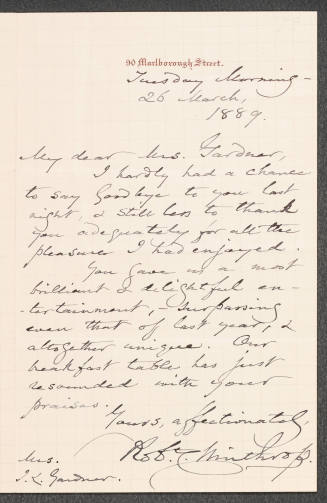 90 Marlborough Street.
Tuesday Morning -
26 March,
1889.
My dear Mrs. Gardner,
I hardly had a chance
to say Goodbye to you last
night, & still less to thank
you adequately for all the
pleasure I had enjoyed.
You gave us a most
brilliant & delightful en-
-tertainment, - surpassing
even that of last year, &
altogether unique. Our
breakfast table has just
resounded with your
praises.
Yours, affectionately,
Robt. C. Winthrop.
Mrs.
J. L. Gardner.